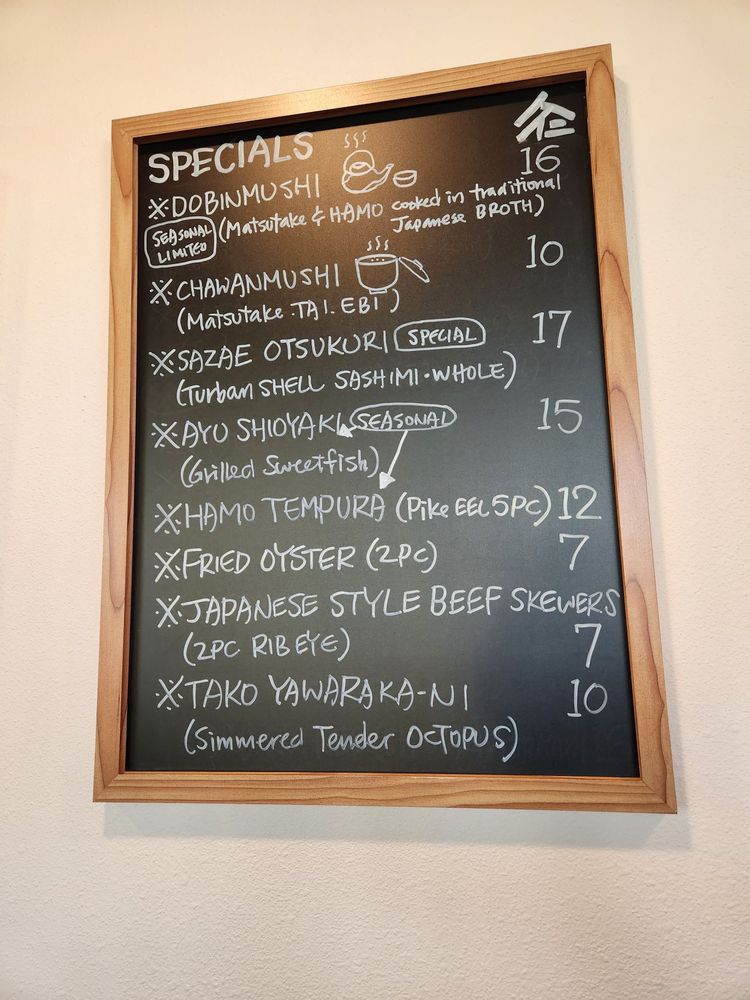 SPECIALS
16
※DOBINMUSHI
SEASONAL LIMITED (Matsutake & HAMO cooked in traditional
Japanese BROTH)
※CHAWANMUSHI 10
(Matsutake.TAI.EBI)
※SAZAE OTSUKURI SPECIAL 17
(Turban SHELL SASHIMI・WHOLE)
※AYU SHIOYAKI SEASONAL 15
(Grilled Sweetfish)
※HAMO TEMPURA (Pike EEL 5PC) 12
※FRIED OYSTER (2PC) 7
※JAPANESE STYLE BEEF SKEWERS
(2PC RIB EYE) 7
※TAKO YAWARAKA-NI 10
(Simmered Tender OCTOPUS)